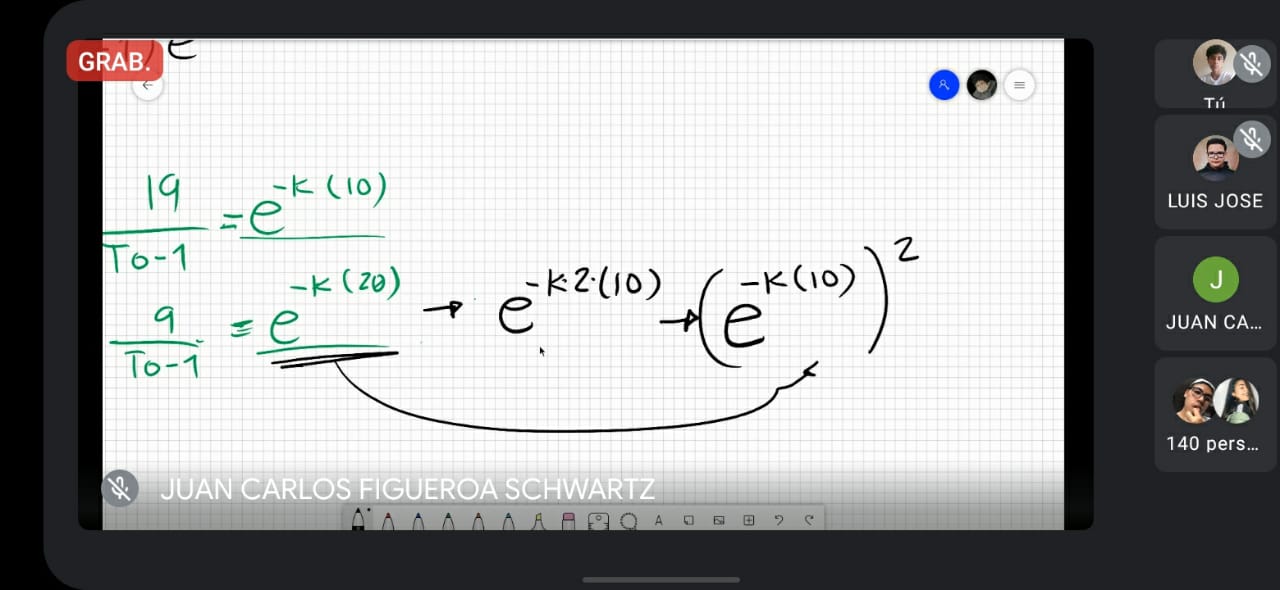 GRAB.
e
19/(To-1) = e^-K(10)
9/(To-1) = e^-K(20) → e^-K·2·(10) → (e^-K(10))^2
JUAN CARLOS FIGUEROA SCHWARTZ
A
Tú
LUIS JOSE
J
JUAN CA...
140 pers...